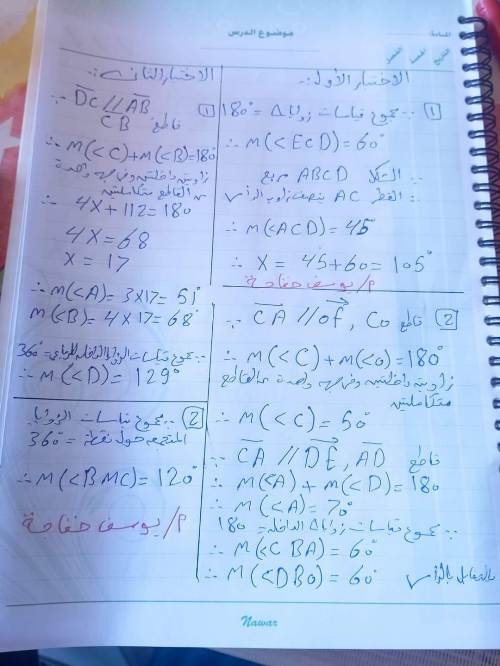 المادة:
موضوع الدرس
التاريخ
الحصة
الفصل
الاختبار الأول:-
1 ∵ مجموع قياسات زوايا Δ = 180°
∴ m(<ECD) = 60°
∵ الشكل ABCD مربع
∴ القطر AC ينصف زاوية الرأس
∴ m(<ACD) = 45°
∴ X = 45+60 = 105°
م/ يوسف خفاجة
2 ∵ CA // OF, CO قاطع
∴ m(<C) + m(<O) = 180°
زاويتين داخلتين وفى جهة واحدة من القاطع
متكاملتين
∴ m(<C) = 50°
∵ CA // DE, AD قاطع
∴ m(<A) + m(<D) = 180
∴ m(<A) = 70°
∵ مجموع قياسات زوايا Δ الداخلة = 180
∴ m(<CBA) = 60°
∴ m(<DBO) = 60° بالتقابل بالرأس
الاختبار الثانى:-
1 ∵ DC // AB
CB قاطع
∴ m(<C)+m(<B)=180
زاويتين داخلتين وفى جهة واحدة
من القاطع متكاملتين
∴ 4X + 112 = 180
4X = 68
X = 17
∴ m(<A) = 3x17 = 51°
m(<B) = 4x17 = 68°
∵ مجموع قياسات الزوايا الداخلة للرباعى = 360°
∴ m(<D) = 129°
2 ∵ مجموع قياسات الزوايا
المتجمعة حول نقطة = 360°
∴ m(<BMC) = 120°
م/ يوسف خفاجة
Nawar